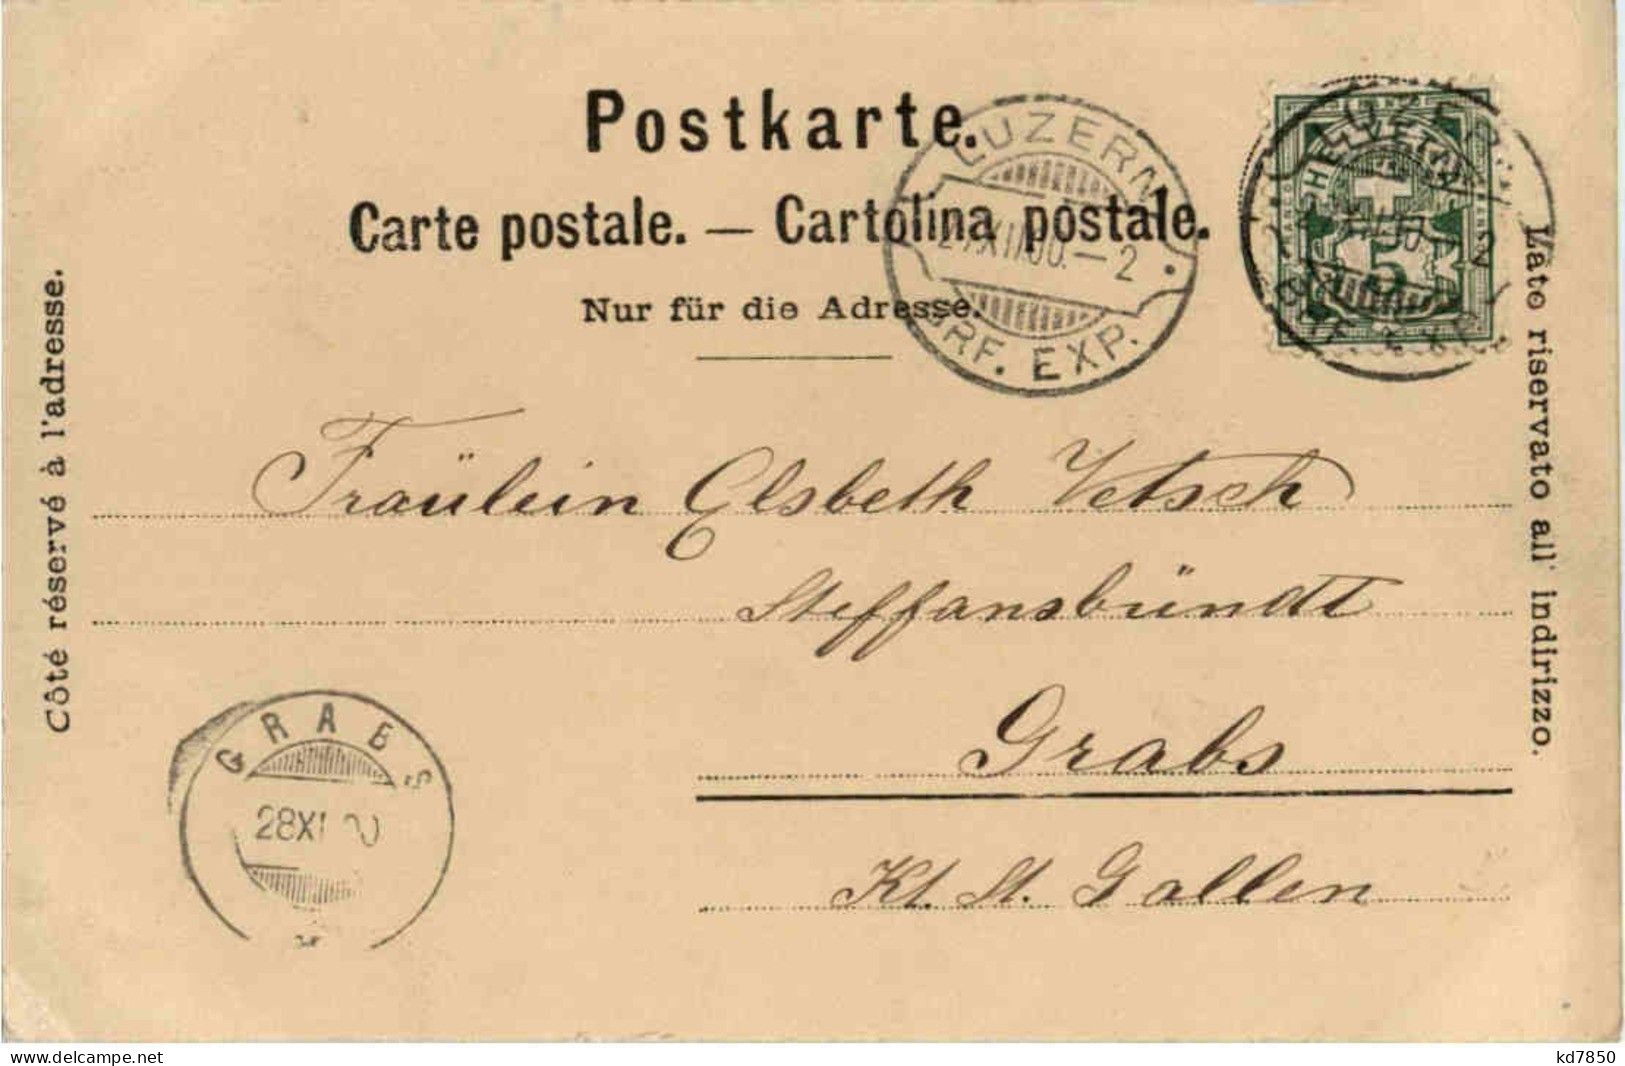 Postkarte.
Carte postale. — Cartolina postale.
Nur für die Adresse.
Côté réservé à l'adresse.
Lato riservato all' indirizzo.
LUZERN
XII 00. — 2
BRF. EXP.
LUZERN
HELVETIA
5
Fräulein Elsbeth Vetsch
Steffansbündt
Grabs
Kt. St. Gallen
GRABS
28 XI
delcampe.net
kd7850